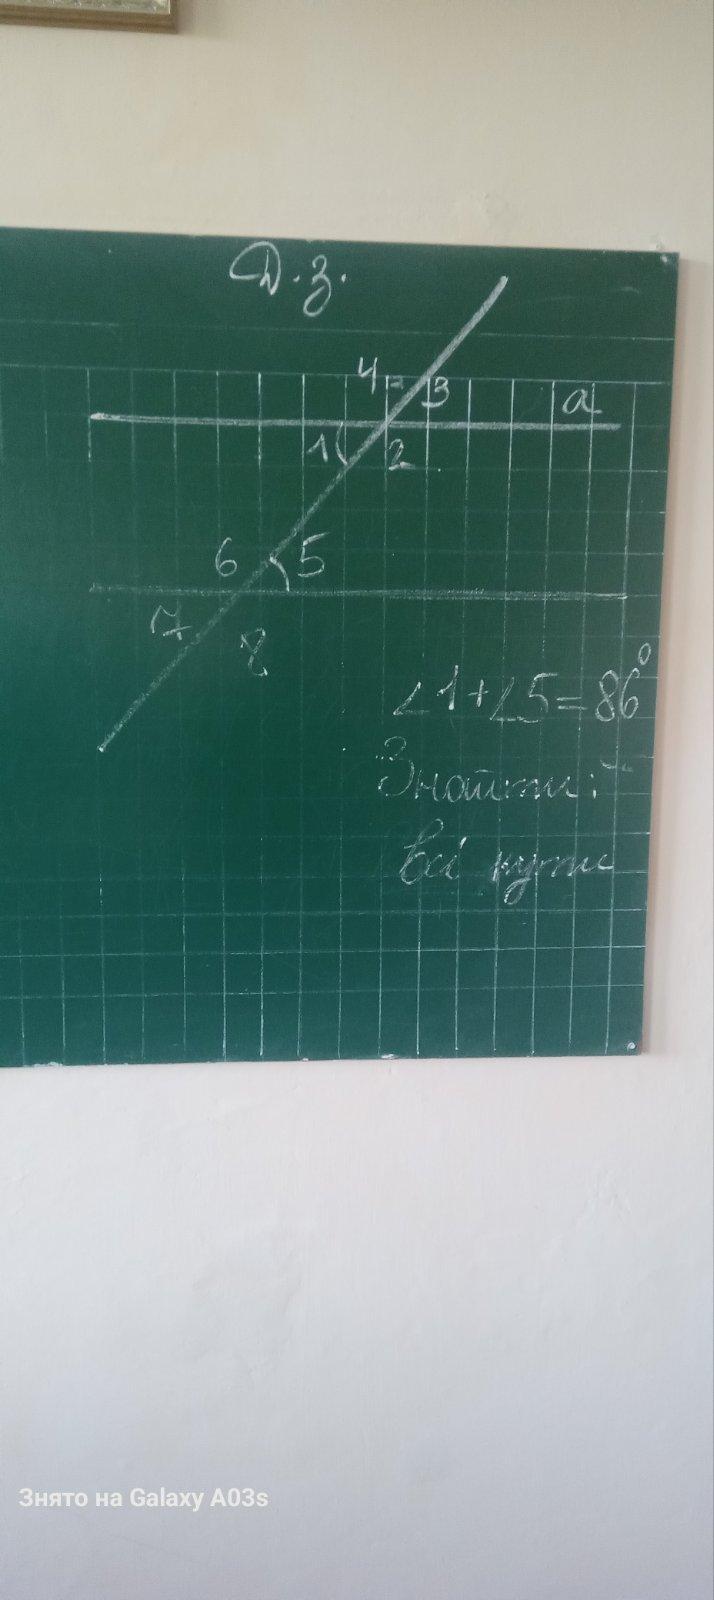 Д.з.
4 3 a
1 2
6 5
7 8
∠1+∠5=86°
Знайти:
всі кути
Знято на Galaxy A03s